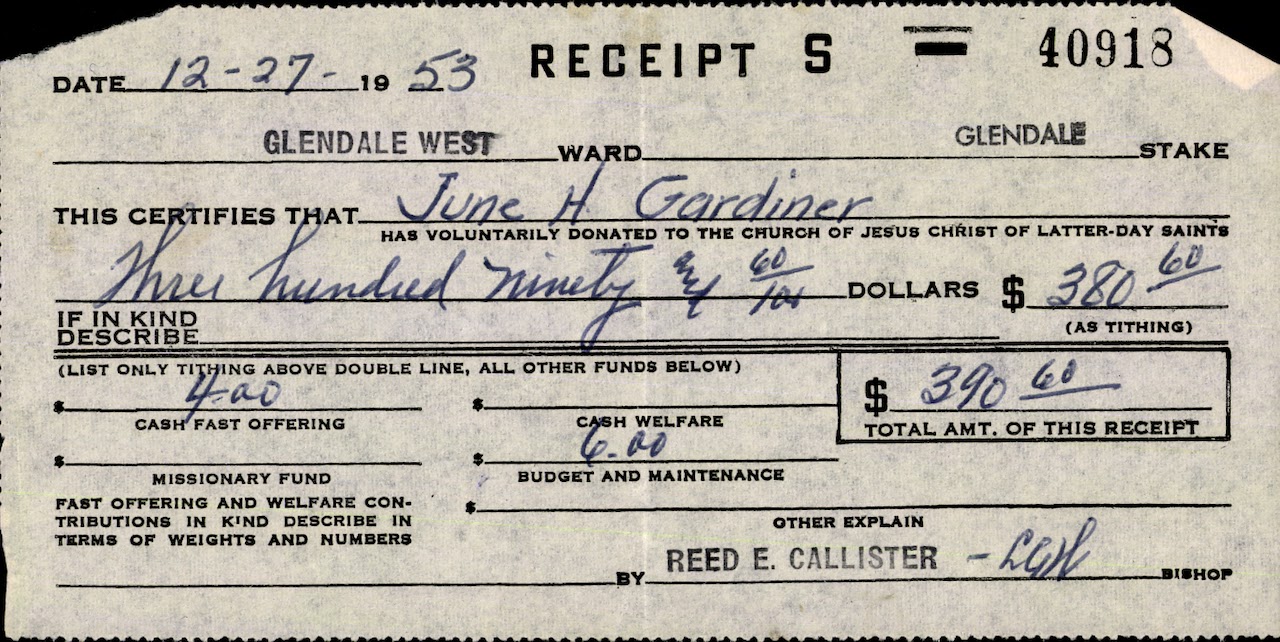 RECEIPT S 40918
DATE 12-27- 19 53
GLENDALE WEST WARD GLENDALE STAKE
THIS CERTIFIES THAT June H. Gardiner
HAS VOLUNTARILY DONATED TO THE CHURCH OF JESUS CHRIST OF LATTER-DAY SAINTS
Three hundred ninety and 60/100 DOLLARS $ 380 60
IF IN KIND
DESCRIBE
(AS TITHING)
(LIST ONLY TITHING ABOVE DOUBLE LINE, ALL OTHER FUNDS BELOW)
$ 4.00
CASH FAST OFFERING
$
CASH WELFARE
$ 390 60
TOTAL AMT. OF THIS RECEIPT
$
MISSIONARY FUND
$ 6.00
BUDGET AND MAINTENANCE
FAST OFFERING AND WELFARE CON-
TRIBUTIONS IN KIND DESCRIBE IN
TERMS OF WEIGHTS AND NUMBERS
$
OTHER EXPLAIN
BY REED E. CALLISTER BISHOP